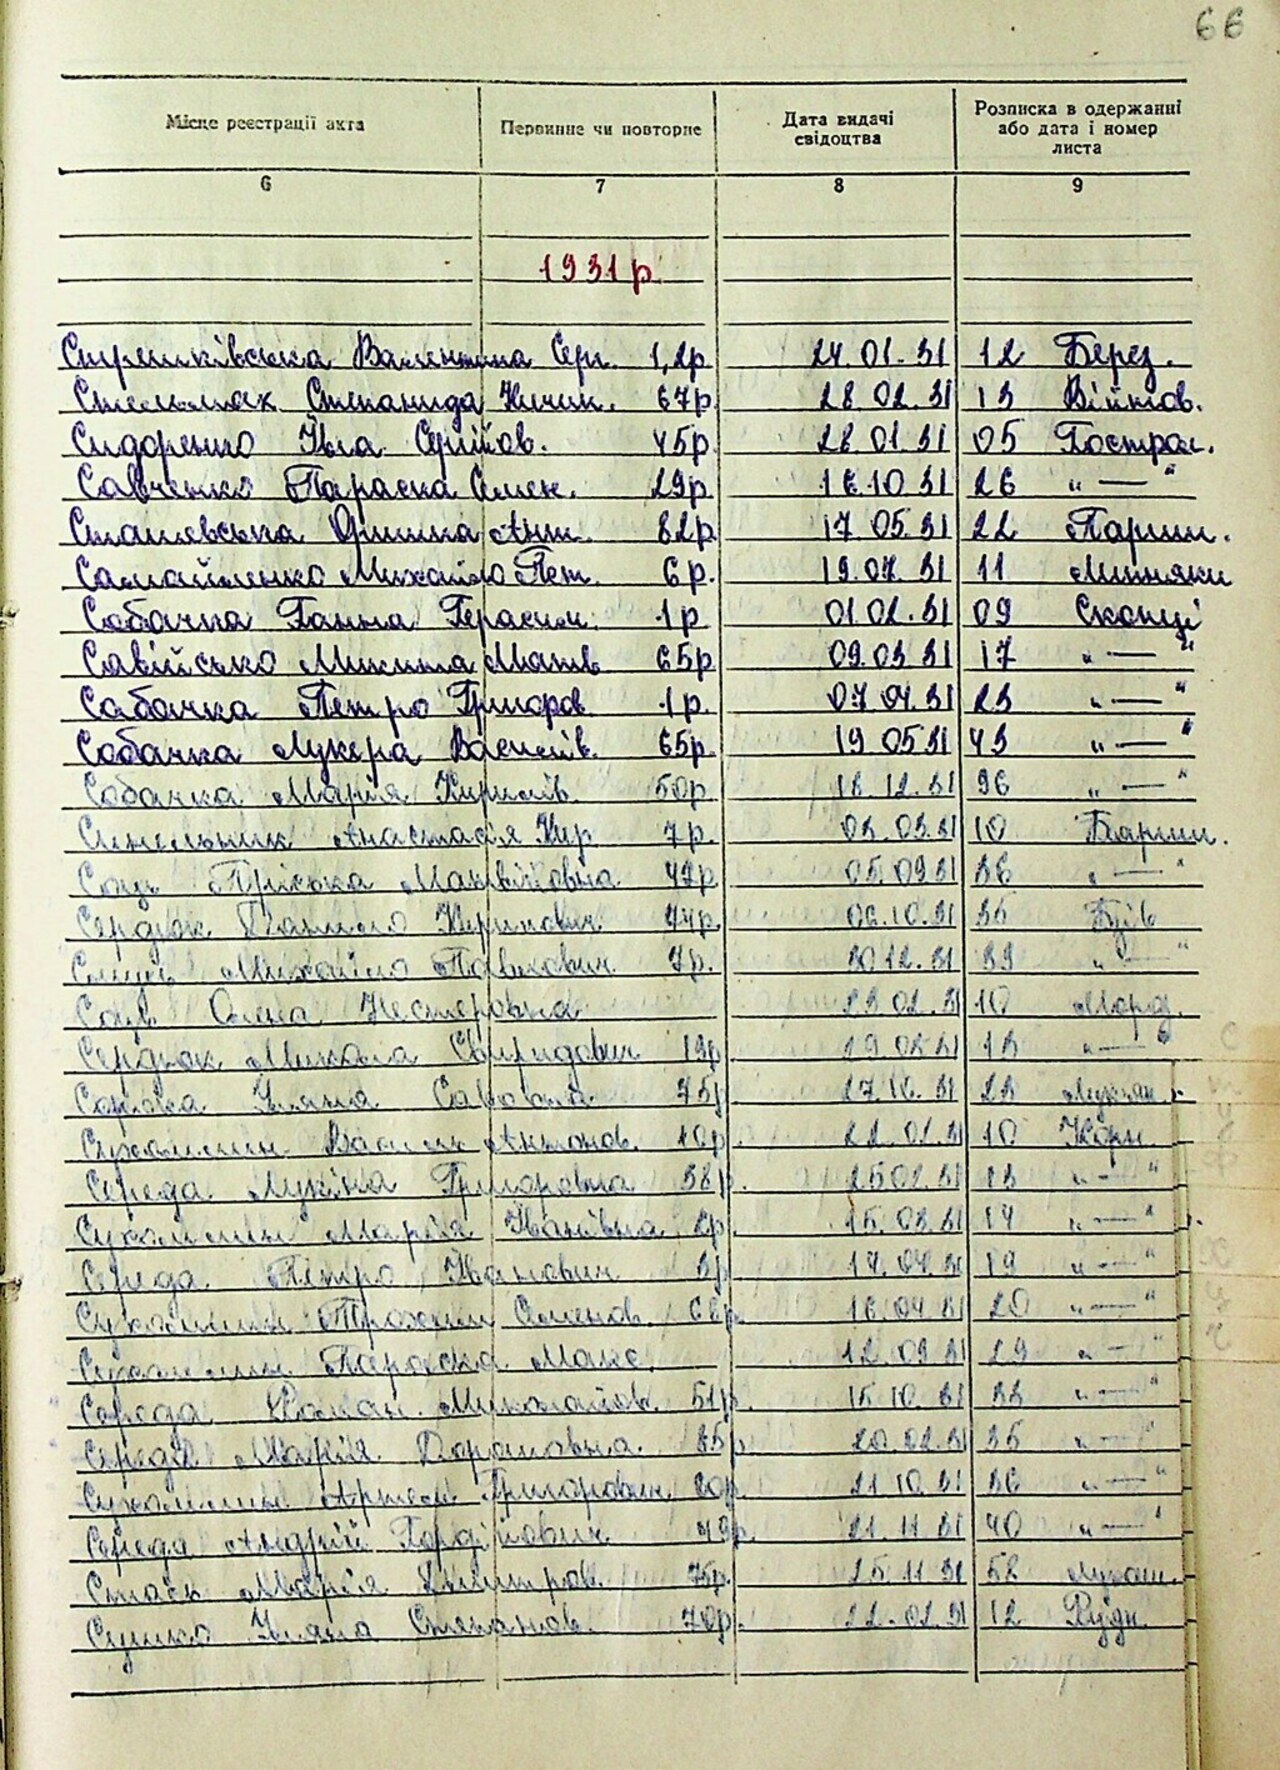 66
Місце реєстрації акта Первинне чи повторне Дата видачі свідоцтва Розписка в одержанні або дата і номер листа
6 7 8 9
1931 р.
Валентина Сер. 1,2р 24.01.31 12 Берез.
Стельмах Степанида Ничип. 67р 28.02.31 13 Війтов.
Сидоренко Ївга Сергійов. 45р 28.01.31 05 Гострол.
Савченко Параска Семен. 29р 16.10 31 26 „ — "
Сташевська Оришка Ант. 82р 17.05.31 22 Парип.
Самойленко Михайло Пет. 6р. 19.07.31 11 Миняки
Собачка Ганна Герасим. 1р 01.02.31 09 Скопці
Савійсько Микита Матв 65р 09.03 31 17 „ — "
Собачка Петро Григоров 1р. 07.04.31 23 „ — "
Собачка Лукера Василів. 65р. 19 05 31 43 „ — "
Собачка Марія Кирилів. 50р 18.12.31 96 „ — "
Синельник Анастасія Кир 7р. 03.03.31 10 Бариш.
Пріська Матвіївна 42р 05.09 31 36 „ — "
Сердюк Данило Кирилович 44р 06.10.31 35
Михайло Павлович 7р. 30 12.31 39 „ — "
Олена Нестеровна 23 02.31 10 Морд.
Сердюк Микола Свиридович 19р 13 „ — "
Уляна Савовна 75р 27.10.31 23
Сухолитин Василь Антонов. 22.01.31 10 Корн.
Середа Мукіна Григоровна 38р. 25 02.31 13 „ — "
Сухолитин Марія Іванівна 2р. 15.03.31 14 „ — "
Середа Петро Іванович 3р 14.04.31 19 „ — "
Сухолитин Прохин Семенов. 68р. 16.04 31 20 „ — "
Сухолитин Параска Макс. 12.09 31 29 „ — "
Середа Роман Миколайов. 51р. 15 10.31 33 „ — "
Середа Марія 85р. 35 „ — "
Сухолитин Артем Григорович 21.10.31 36 „ — "
Середа Андрій Гордійович 49р. 21.11.31 40 „ — "
Марія Дмитров. 75р. 25.11 31 58
Сушко Уляна Степанов. 70р. 22.02.31 12 Рудн.